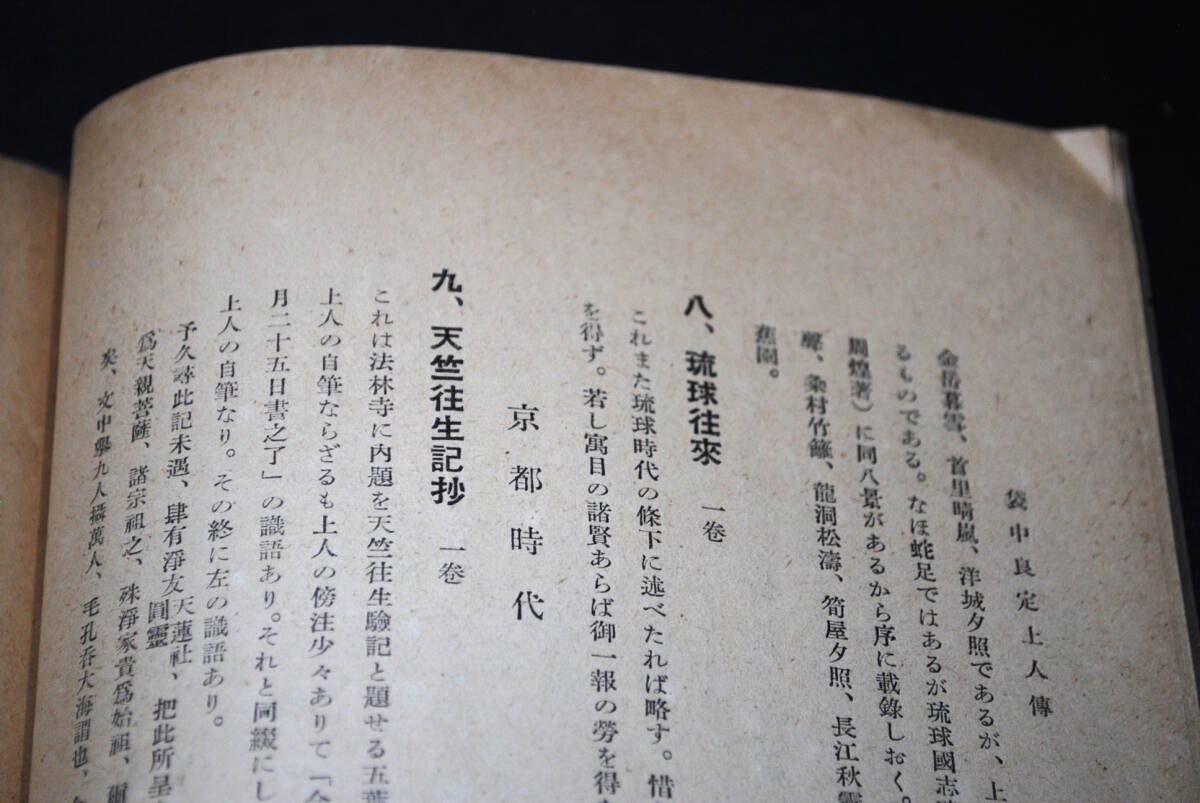 袋中良定上人傳
金岳暮雪、首里晴嵐、洋城夕照であるが、上
るものである。なほ蛇足ではあるが琉球國志
周煌著)に同八景があるから序に載錄しおく。
聲、粂村竹籬、龍洞松濤、筍屋夕照、長江秋霽
蕉園。
八、琉球往來 一卷
これまた琉球時代の條下に述べたれば略す。惜
を得ず。若し寓目の諸賢あらば御一報の勞を得
京都時代
九、天竺往生記抄 一卷
これは法林寺に内題を天竺往生驗記と題せる五葉
上人の自筆ならざるも上人の傍注少々ありて「
月二十五日書之了」の識語あり。それと同綴にし
上人の自筆なり。その終に左の識語あり。
予久尋此記未遇、肆有淨友天蓮社、圓靈把此所呈
爲天親菩薩、諸宗祖之、殊淨家貴爲始祖、
矣、文中擧九人攝萬人、毛孔呑大海謂也、